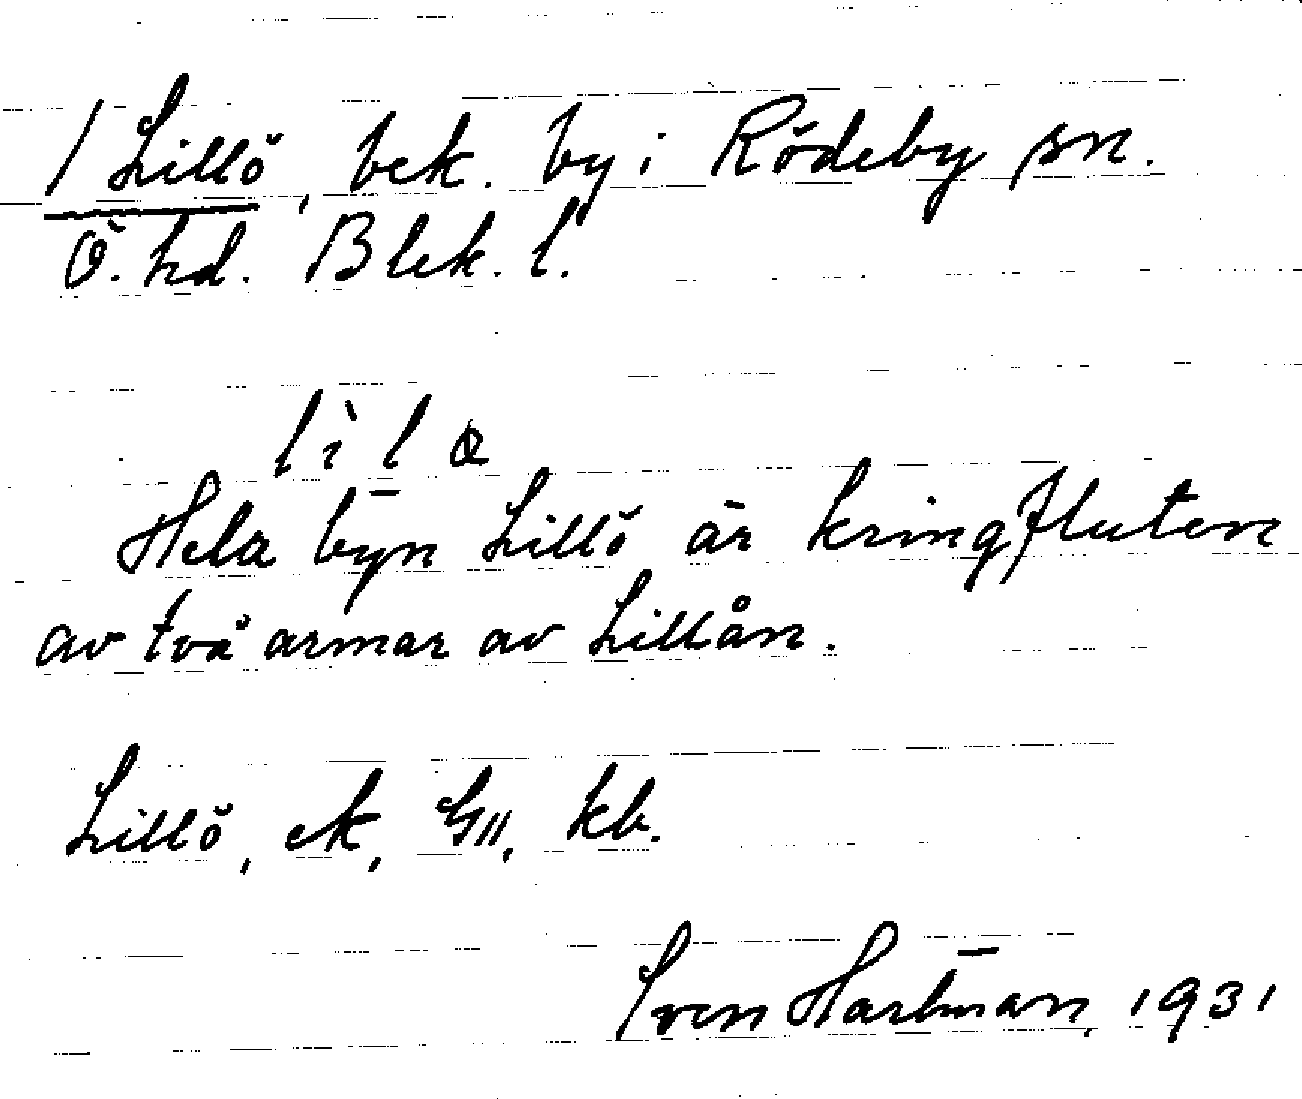 / Lillö, bek. by i Rödeby sn.
Ö. hd. Blek. l.
lìlɷ
Hela byn Lillö är kringfluten
av två armar av Lillån.
Lillö, ek, GII, kb.
Sven Hartman, 1931